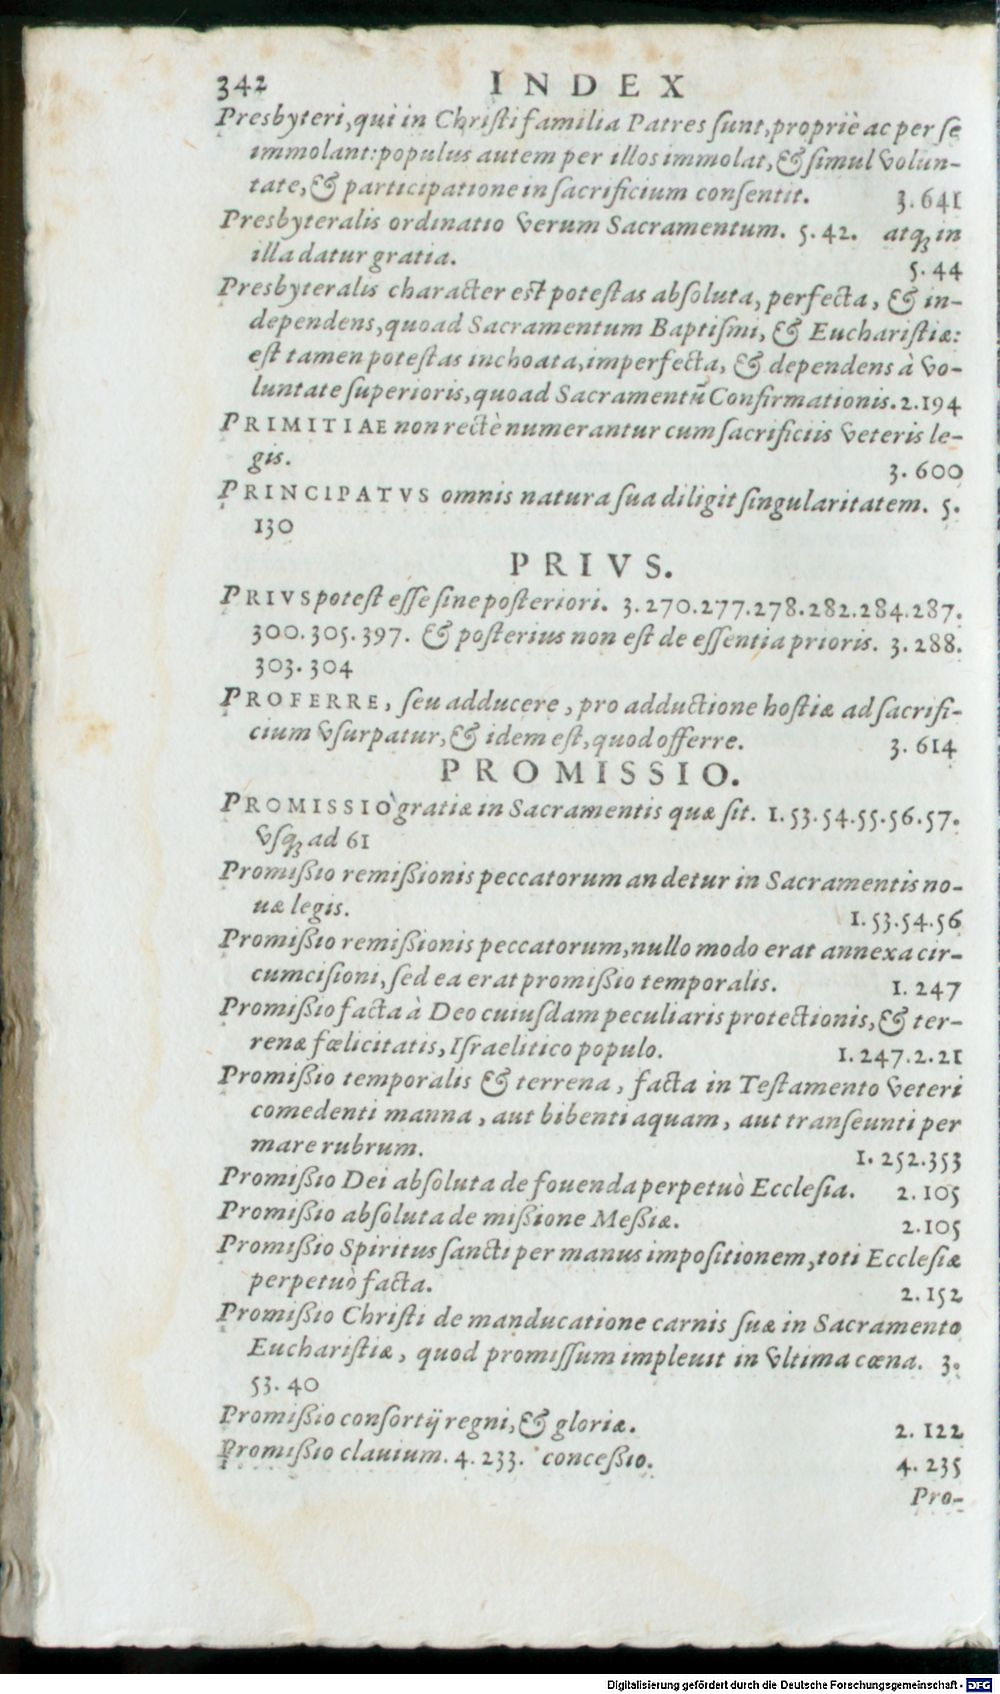 342 INDEX
Presbyteri, qui in Christi familia Patres sunt, propriè ac per se
immolant: populus autem per illos immolat, & simul volun-
tate, & participatione in sacrificium consentit. 3. 641
Presbyteralis ordinatio verum Sacramentum. 5. 42. atq; in
illa datur gratia. 5. 44
Presbyteralis character est potestas absoluta, perfecta, & in-
dependens, quoad Sacramentum Baptismi, & Eucharistiæ:
est tamen potestas inchoata, imperfecta, & dependens à vo-
luntate superioris, quoad Sacramentū Confirmationis. 2. 194
PRIMITIAE non rectè numerantur cum sacrificiis veteris le-
gis. 3. 600
PRINCIPATVS omnis natura sua diligit singularitatem. 5.
130
PRIVS.
PRIVS potest esse sine posteriori. 3. 270. 277. 278. 282. 284. 287.
300. 305. 397. & posterius non est de essentia prioris. 3. 288.
303. 304
PROFERRE, seu adducere, pro adductione hostiæ ad sacrifi-
cium vsurpatur, & idem est, quod offerre. 3. 614
PROMISSIO.
PROMISSIO gratiæ in Sacramentis quæ sit. 1. 53. 54. 55. 56. 57.
vsq; ad 61
Promißio remißionis peccatorum an detur in Sacramentis no-
uæ legis. 1. 53. 54. 56
Promißio remißionis peccatorum, nullo modo erat annexa cir-
cumcisioni, sed ea erat promißio temporalis. 1. 247
Promißio facta à Deo cuiusdam peculiaris protectionis, & ter-
renæ fœlicitatis, Israelitico populo. 1. 247. 2. 21
Promißio temporalis & terrena, facta in Testamento veteri
comedenti manna, aut bibenti aquam, aut transeunti per
mare rubrum. 1. 252. 353
Promißio Dei absoluta de fouenda perpetuò Ecclesia. 2. 105
Promißio absoluta de mißione Meßiæ. 2. 105
Promißio Spiritus sancti per manus impositionem, toti Ecclesiæ
perpetuò facta. 2. 152
Promißio Christi de manducatione carnis suæ in Sacramento
Eucharistiæ, quod promissum impleuit in vltima cœna. 3.
53. 40
Promißio consortij regni, & gloriæ. 2. 122
Promißio clauium. 4. 233. conceßio. 4. 235
Pro-
Digitalisierung gefördert durch die Deutsche Forschungsgemeinschaft - DFG